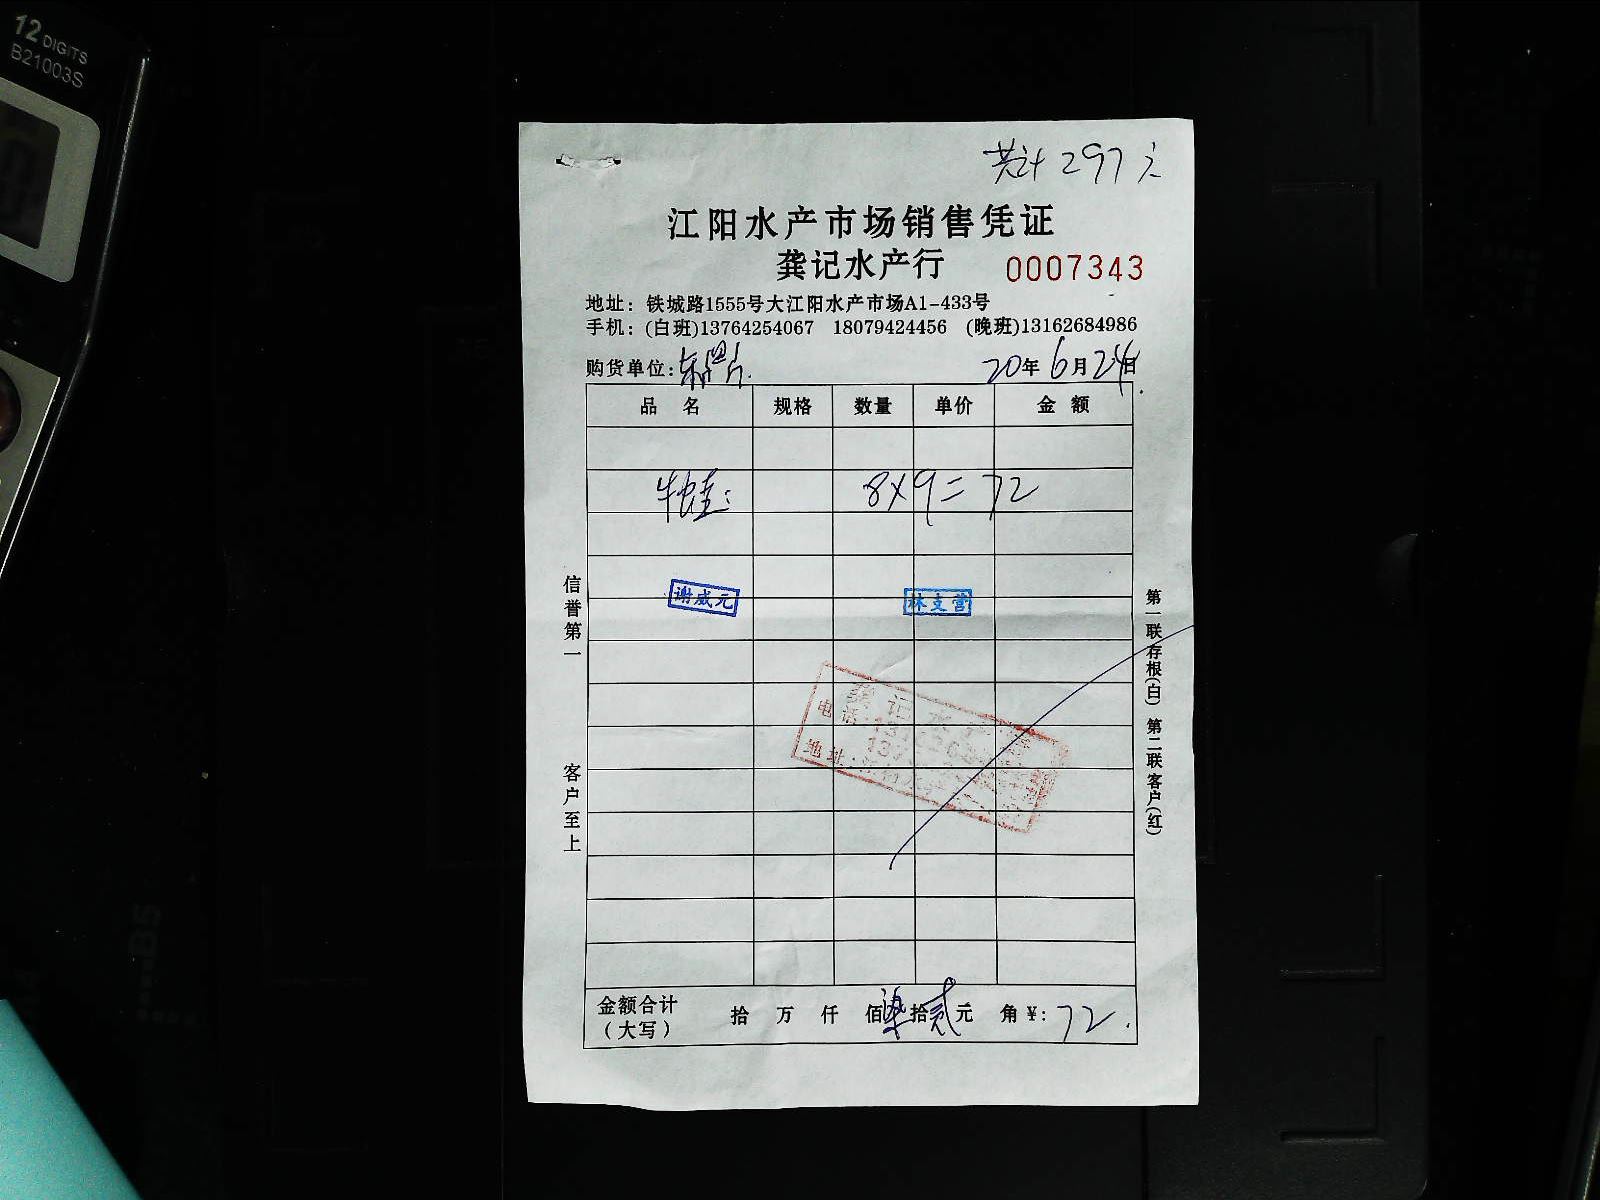 12 DIGITS
B21003S
共计297元
江阳水产市场销售凭证
龚记水产行 0007343
地址：铁城路1555号大江阳水产市场A1-433号
手机：(白班)13764254067 18079424456 (晚班)13162684986
购货单位： 20年6月24日
品名 规格 数量 单价 金额
牛蛙： 8×9=72
谢威元 林支营
信誉第一 客户至上
第一联存根(白) 第二联客户(红)
龚记水产
电话：
地址：
金额合计 拾 万 仟 佰柒拾贰元 角 ¥：72.
（大写）
B5